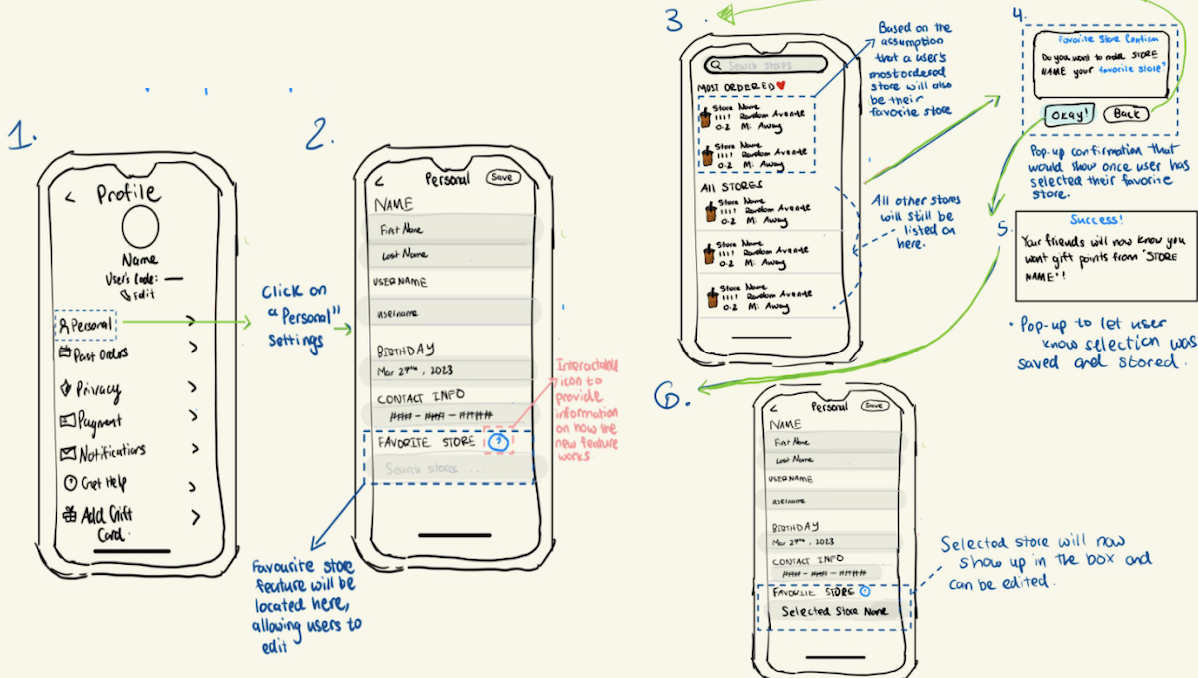 1.
<
Profile
Name
User's Code:
Edit
Personal
>
Past Orders
>
Privacy
>
Payment
>
Notifications
>
Get Help
>
Add Gift
Card.
>
Click on
"Personal"
settings
2.
<
Personal
Save
NAME
First Name
Last Name
USERNAME
username
BIRTHDAY
Mar 27th, 2023
CONTACT INFO
### - ### - ####
FAVORITE STORE
?
Search stores ...
Interactable
icon to
provide
information
on how the
new feature
works
Favourite store
feature will be
located here,
allowing users to
edit
3.
Search stores
MOST ORDERED
Store Name
1111 Random Avenue
0.2 Mi Away
Store Name
1111 Random Avenue
0.2 Mi Away
All STORES
Store Name
1111 Random Avenue
0.2 Mi Away
Store Name
1111 Random Avenue
0.2 Mi Away
Store Name
1111 Random Avenue
0.2 Mi Away
Based on the
assumption
that a user's
most ordered
store will also
be their
favorite store
All other stores
will still be
listed on
here.
4.
Favorite Store Confirm
Do you want to make STORE
NAME your favorite store?
Okay!
Back
Pop-up confirmation that
would show once user has
selected their favorite
store.
5.
Success!
Your friends will now know you
want gift points from "STORE
NAME"!
• Pop-up to let user
know selection was
saved and stored.
6.
<
Personal
Save
NAME
First Name
Last Name
USERNAME
username
BIRTHDAY
Mar 27th, 2023
CONTACT INFO
### - ### - ####
FAVORITE STORE
Selected Store Name
Selected store will now
show up in the box and
can be edited.